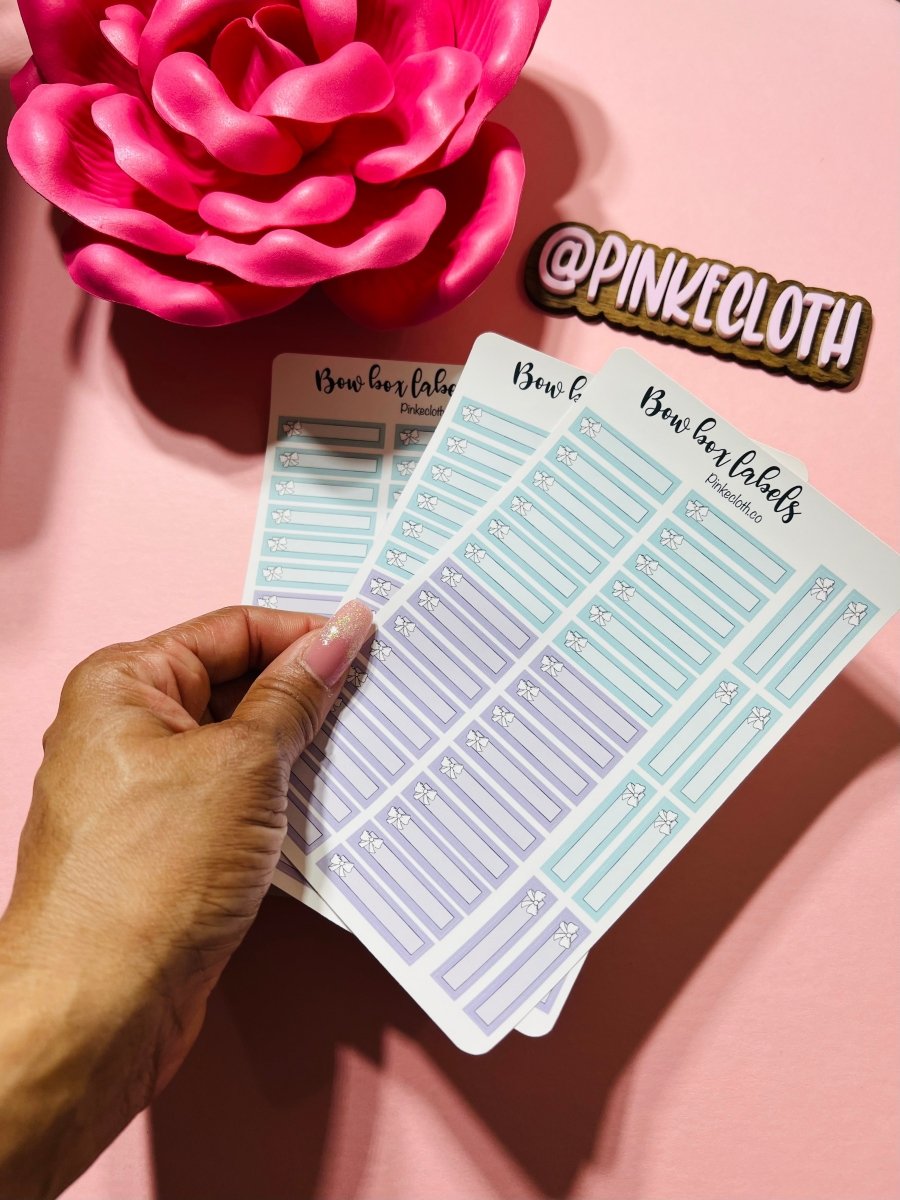 @PINKECLOTH
Bow box labe
Pinkecloth
Bow b
Bow box labels
Pinkecloth.co